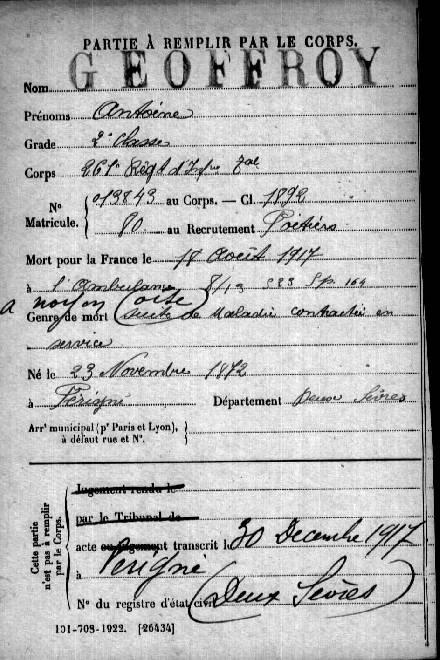 PARTIE À REMPLIR PAR LE CORPS.
Nom GEOFFROY
Prénoms Antoine
Grade 2e classe
Corps 261e Régt d'Inf Tale
N° Matricule. 013843 au Corps. — Cl. 1892
80 au Recrutement Poitiers
Mort pour la France le 18 Août 1917
à l'Ambulance 8/13 S 23 S.p. 164
a noyon (oise)
Genre de mort suite de Maladie contractée en
service
Né le 23 Novembre 1872
à Périgné Département Deux Sèvres
Arrt municipal (pr Paris et Lyon),
à défaut rue et N°.
Cette partie
n'est pas à remplir
par le Corps.
Jugement rendu le
par le Tribunal de
acte ou jugement transcrit le 30 Decembre 1917
à Périgné
N° du registre d'état civil (Deux Sèvres)
101-708-1922. [26434]